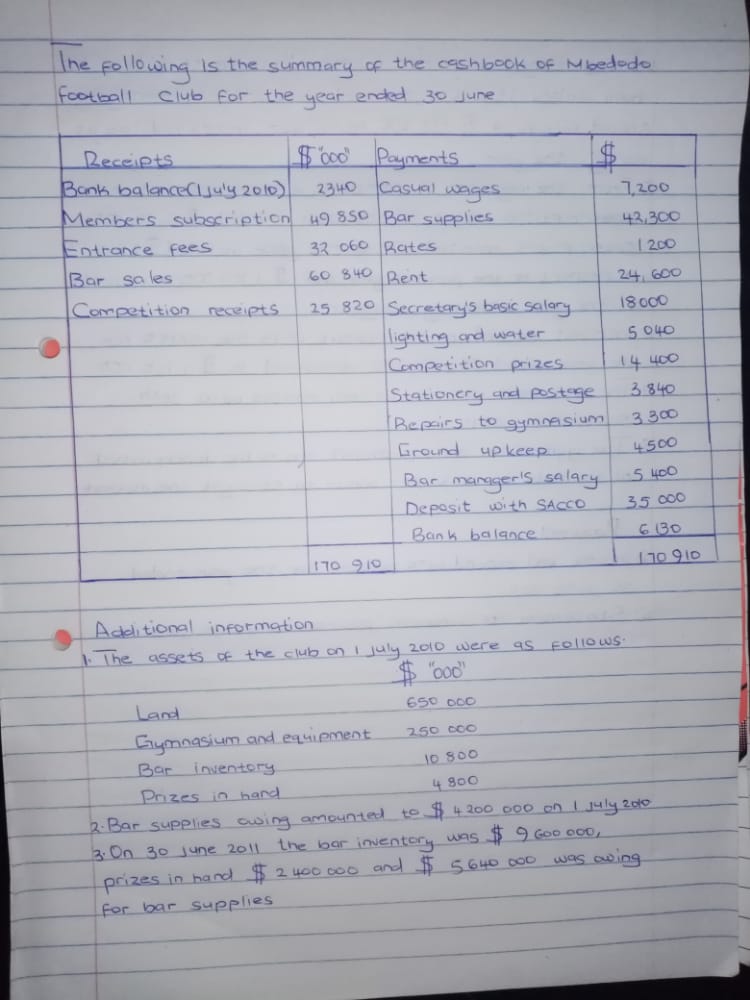 The following is the summary of the cashbook of Mbedodo
Football Club for the year ended 30 June
Receipts $"000" Payments $
Bank balance(1 July 2010) 2340 Casual wages 7,200
Members subscription 49 850 Bar supplies 42,300
Entrance fees 32 060 Rates 1 200
Bar sales 60 840 Rent 24,600
Competition receipts 25 820 Secretary's basic salary 18000
lighting and water 5 040
Competition prizes 14 400
Stationery and postage 3 840
Repairs to gymnasium 3 300
Ground upkeep 4500
Bar manager's salary 5 400
Deposit with SACCO 35 000
Bank balance 6 130
170 910 170 910
Additional information
1. The assets of the club on 1 July 2010 were as follows.
$ "000"
Land 650 000
Gymnasium and equipment 250 000
Bar inventory 10 800
Prizes in hand 4 800
2. Bar supplies owing amounted to $ 4 200 000 on 1 July 2010
3. On 30 June 2011 the bar inventory was $ 9 600 000,
prizes in hand $ 2 400 000 and $ 5 640 000 was owing
for bar supplies